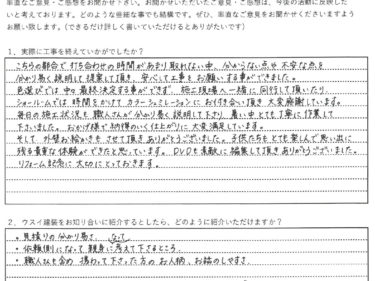 率直なご意見・ご感想をお聞かせ下さい。お聞かせいただいたご意見・ご感想は、今後の活動に反映した
いと考えております。どのような些細な事でも結構です。ぜひ、率直なご意見をお聞かせくださいますよう
お願い致します。（できるだけ詳しく書いていただけるとありがたいです）
1、実際に工事を終えていかがでしたか？
こちらの都合で打ち合わせの時間があまり取れない中、分からない点や不安な点を
分かり易く説明して提案して頂き、安心して工事をお願いする事ができました。
色選びでは中々最終決定する事ができず、施工現場へ一緒に同行して頂いたり、
ショールームでは時間をかけてカラーシュミレーションにお付き合い頂き大変感謝しています。
毎日の施工状況も職人さんが分かり易く説明して下さり、暑い中とても丁寧に作業して
下さいました。おかげ様で納得のいく仕上がりに大変満足しています。
そして外壁お絵かきもさせて頂きありがとうございました。子供たちもとても楽しんで思い出に
残る貴重な体験ができたと思っています。DVDも素敵に編集して頂きありがとうございました。
リフォーム記念に大切にとっておきます。
2、ウスイ建装をお知り合いに紹介するとしたら、どのように紹介いただけますか？
・見積りの分かり易さ
・依頼側になって親身に考えて下さるところ
・職人さんも含め携わって下さった方のお人柄、お話のしやすさ